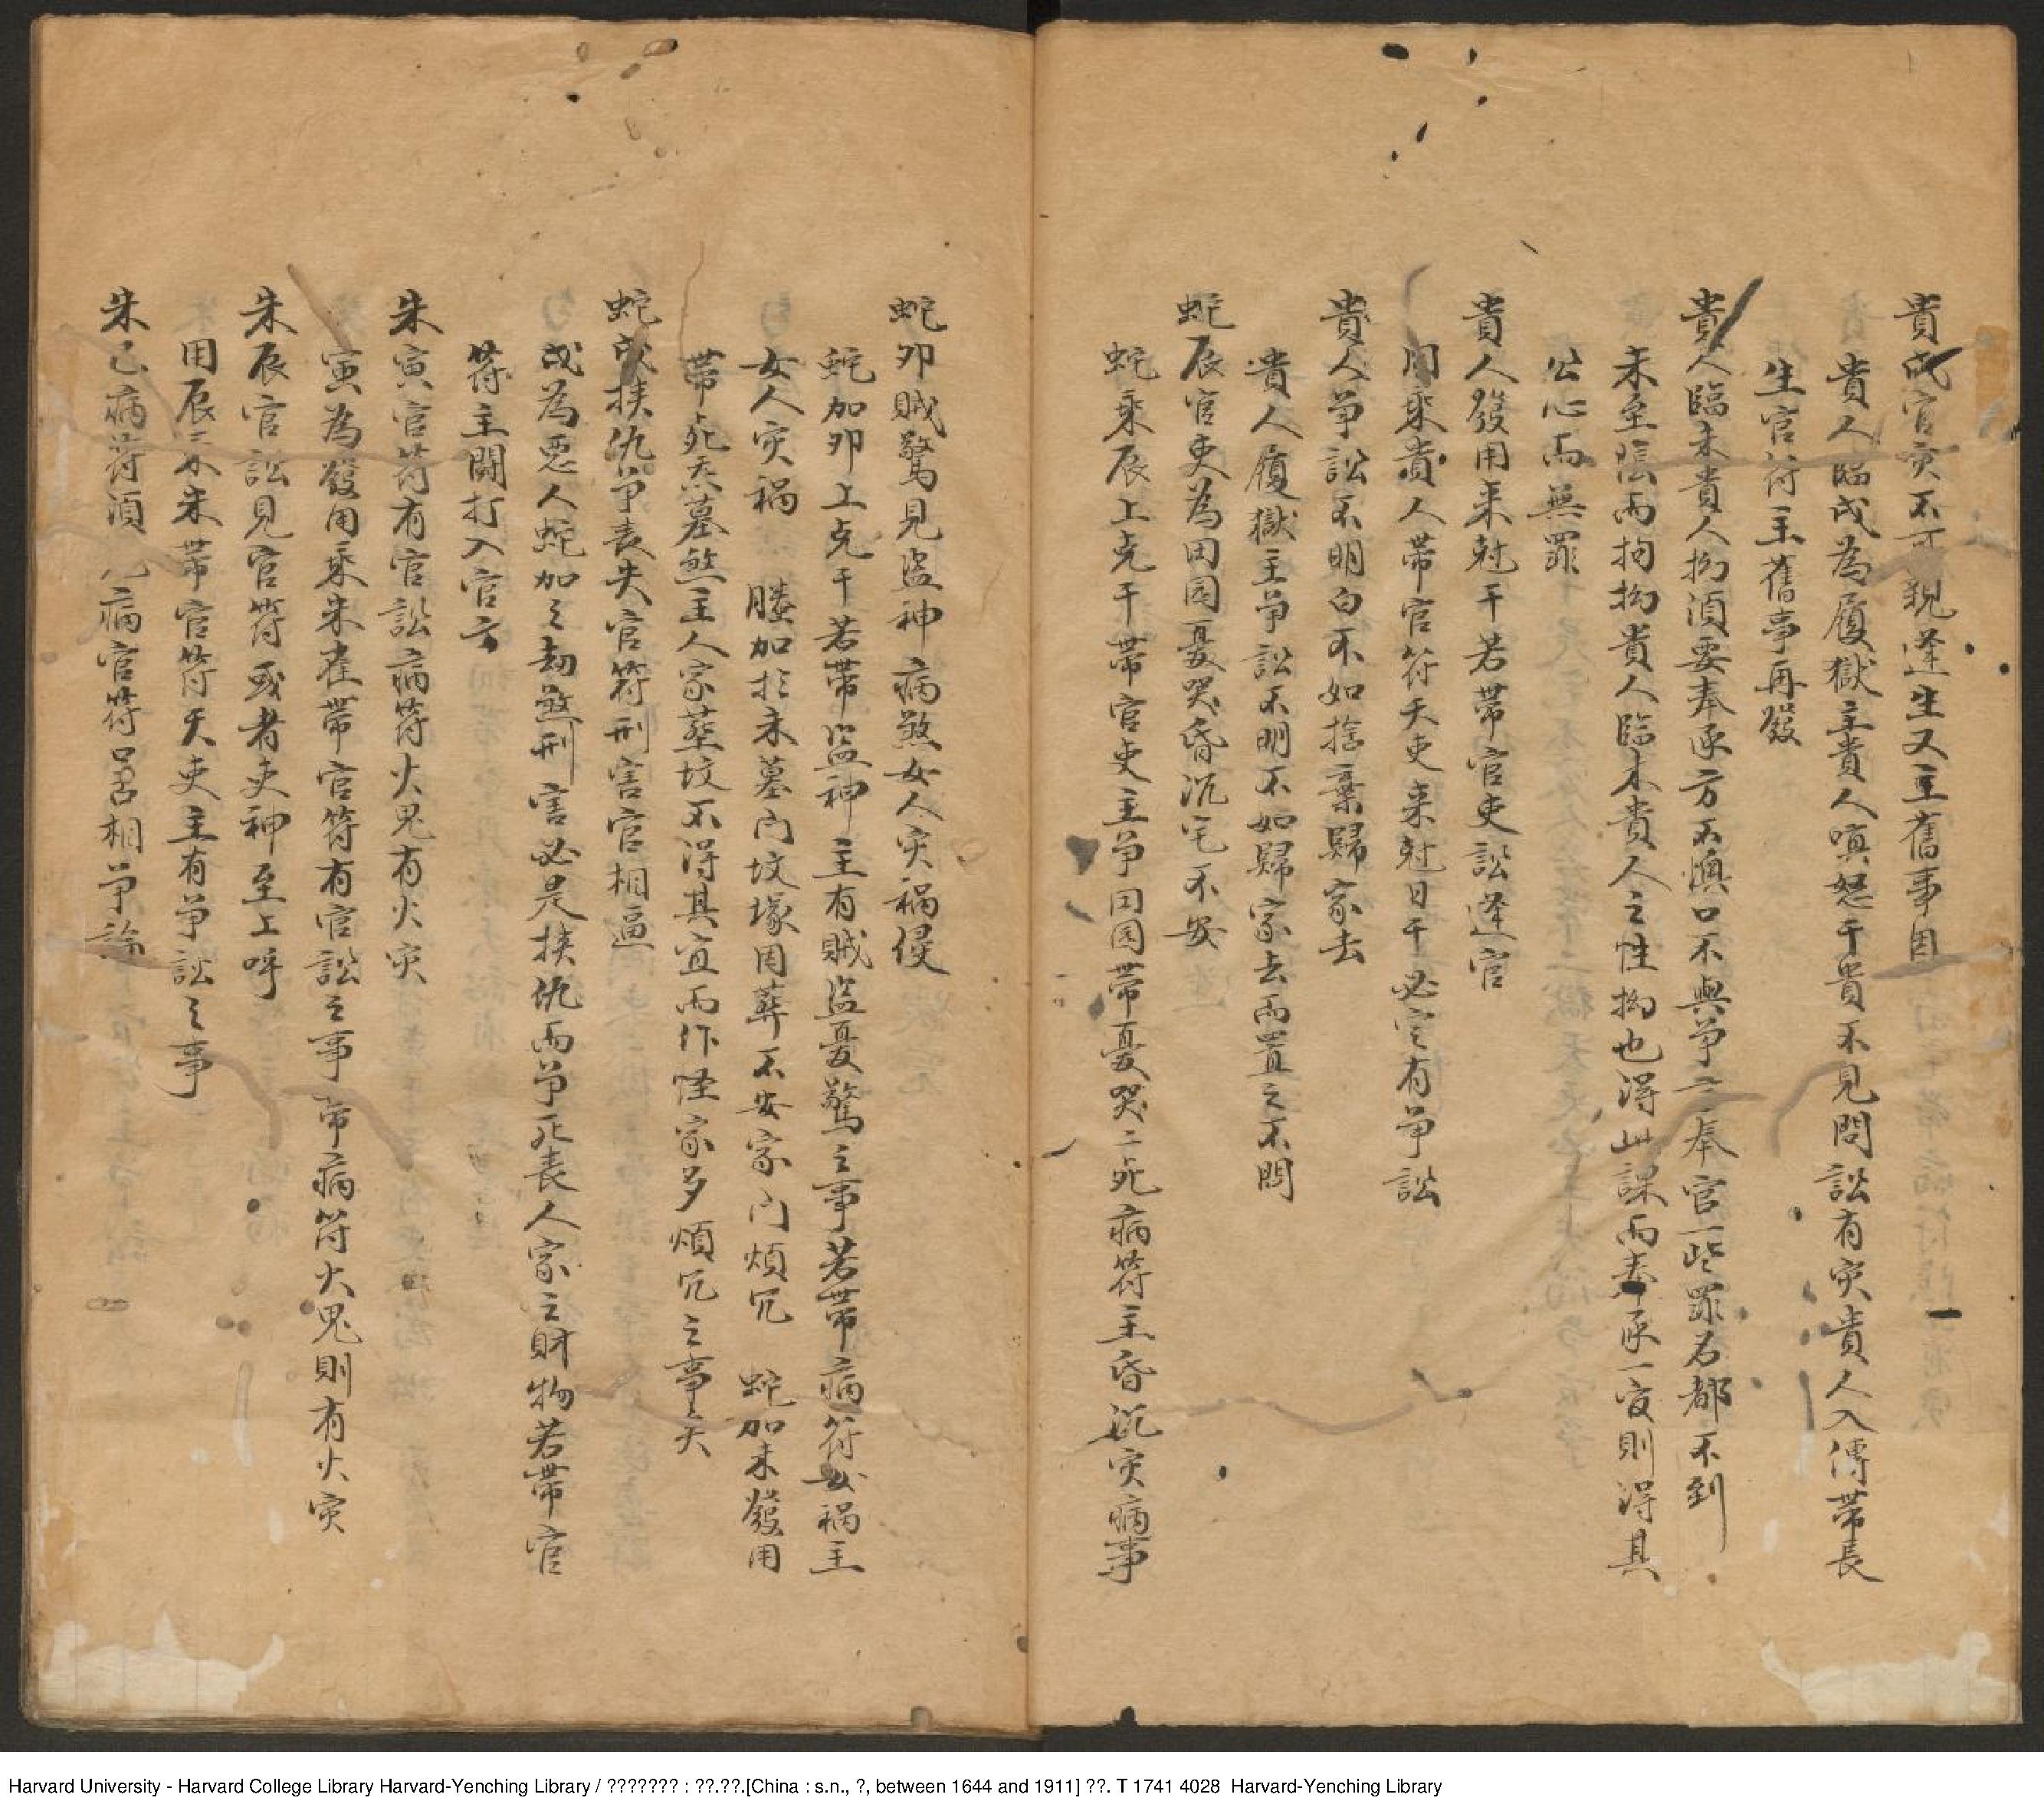 貴戌官灾不可親逢生又主舊事因
貴人臨戌為履獄主貴人嗔怒干貴不見問訟有灾貴人入傳帶長
生官符主舊事再發
貴人臨未貴人拗須要奉承方不慎口不與爭二奉官一些罪名都不到
未至陰而拘拗貴人臨木貴人之性拗也得此課而奉承一度則得其
公心而無罪
貴人發用来尅干若帶官吏訟逢官
用乘貴人帶官符天吏来尅日干必定有爭訟
貴人爭訟不明白不如捨棄歸家去
貴人履獄主爭訟不明不如歸家去而置之不問
蛇辰官吏為田园憂哭昏沉宅不安
蛇乘辰上克干帶官吏主爭田园帶憂哭二死病符主昏沉灾病事
蛇夘賊驚見盜神病煞女人灾禍侵
蛇加夘上克干若帶盜神主有賊盜憂驚之事若帶病符女禍主
女人灾禍 螣加於未墓门坟塚因葬不安家门煩冗 蛇加未發用
帶死炁墓煞主人家塟坟不得其宜而作怪家多煩冗之事矣
蛇戌挟仇爭丧失官符刑害官相逼
戌為惡人蛇加之劫煞刑害必是挾仇而爭死丧人家之財物若帶官
符主鬪打入官方
朱寅官符有官訟病符火鬼有火灾
寅為發用乘朱雀帶官符有官訟之事帶病符火鬼則有火灾
朱辰官訟見官符或者吏神至上呼
用辰乘朱帶官符天吏主有爭訟之事
朱已病符須 病官符口舌相爭論